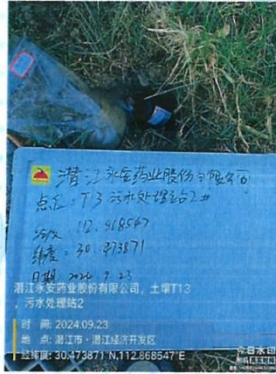 潜江永安药业股份有限公司
点位：T3 污水处理站2#
经度：112.868547
纬度：30.473871
日期 2024.9.23
潜江永安药业股份有限公司，土壤T13
，污水处理站2
时 间：2024.09.23
地 点：潜江市·潜江经济开发区
经纬度：30.473871°N,112.868547°E
今日水印